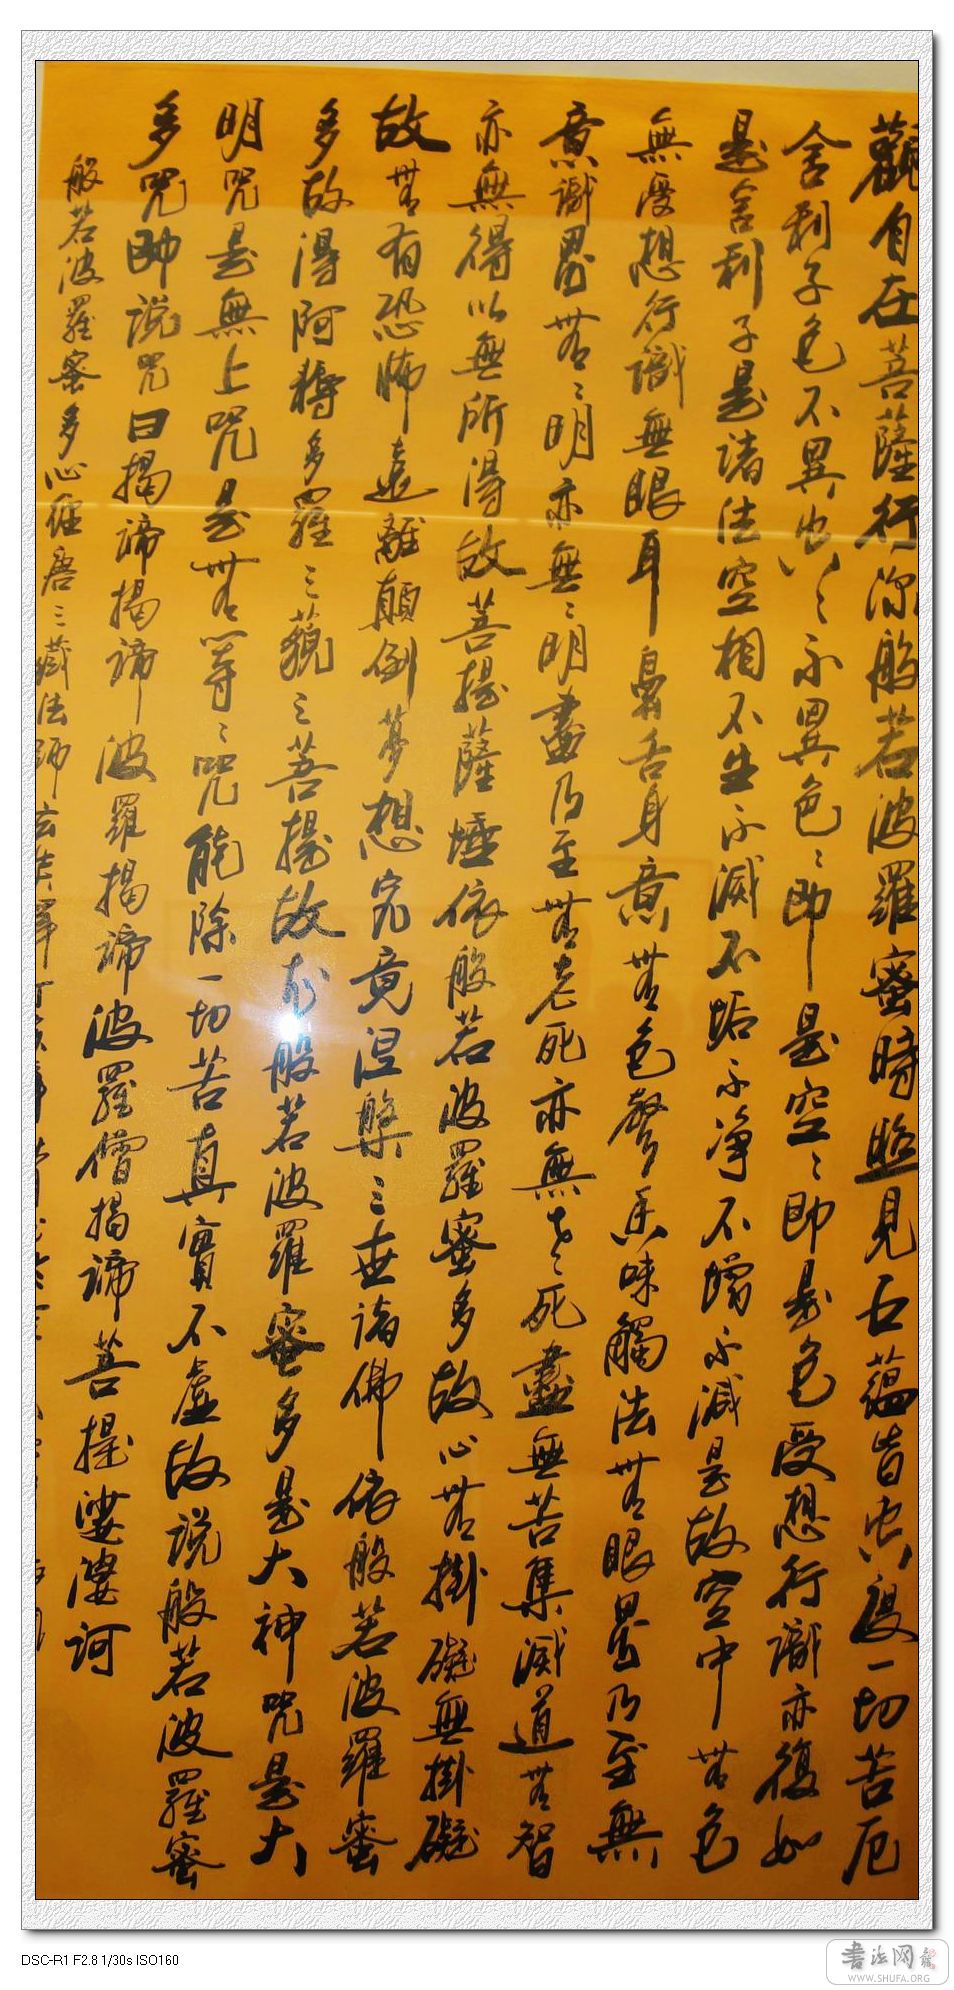 觀自在菩薩行深般若波羅蜜時照見五蘊皆空度一切苦厄
舍利子色不異空〻不異色〻即是空〻即是色受想行識亦復如
是舍利子是諸法空相不生不滅不垢不净不增不減是故空中無色
無受想行識無眼耳鼻舌身意無色聲香味觸法無眼界乃至無
意識界無〻明亦無〻明盡乃至無老死亦無老〻死盡無苦集滅道無智
亦無得以無所得故菩提薩埵依般若波羅蜜多故心無掛礙無掛礙
故無有恐怖遠離顛倒夢想究竟涅槃三世諸佛依般若波羅蜜
多故得阿耨多羅三藐三菩提故知般若波羅蜜多是大神咒是大
明咒是無上咒是無等〻咒能除一切苦真實不虛故説般若波羅蜜
多咒即説咒曰揭諦揭諦波羅揭諦波羅僧揭諦菩提娑婆訶
般若波羅蜜多心經唐三藏法師玄奘譯
DSC-R1 F2.8 1/30s ISO160
書法网
WWW.SHUFA.ORG